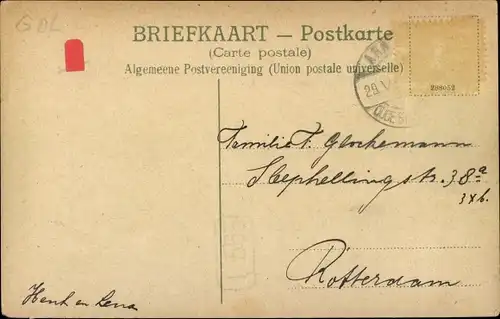 G DL
BRIEFKAART — Postkarte
(Carte postale)
Algemeene Postvereeniging (Union postale universelle)
298052
Familie F. Glockemann
Stephellingstr. 38a
3 x b.
Rotterdam
Henk en Lena